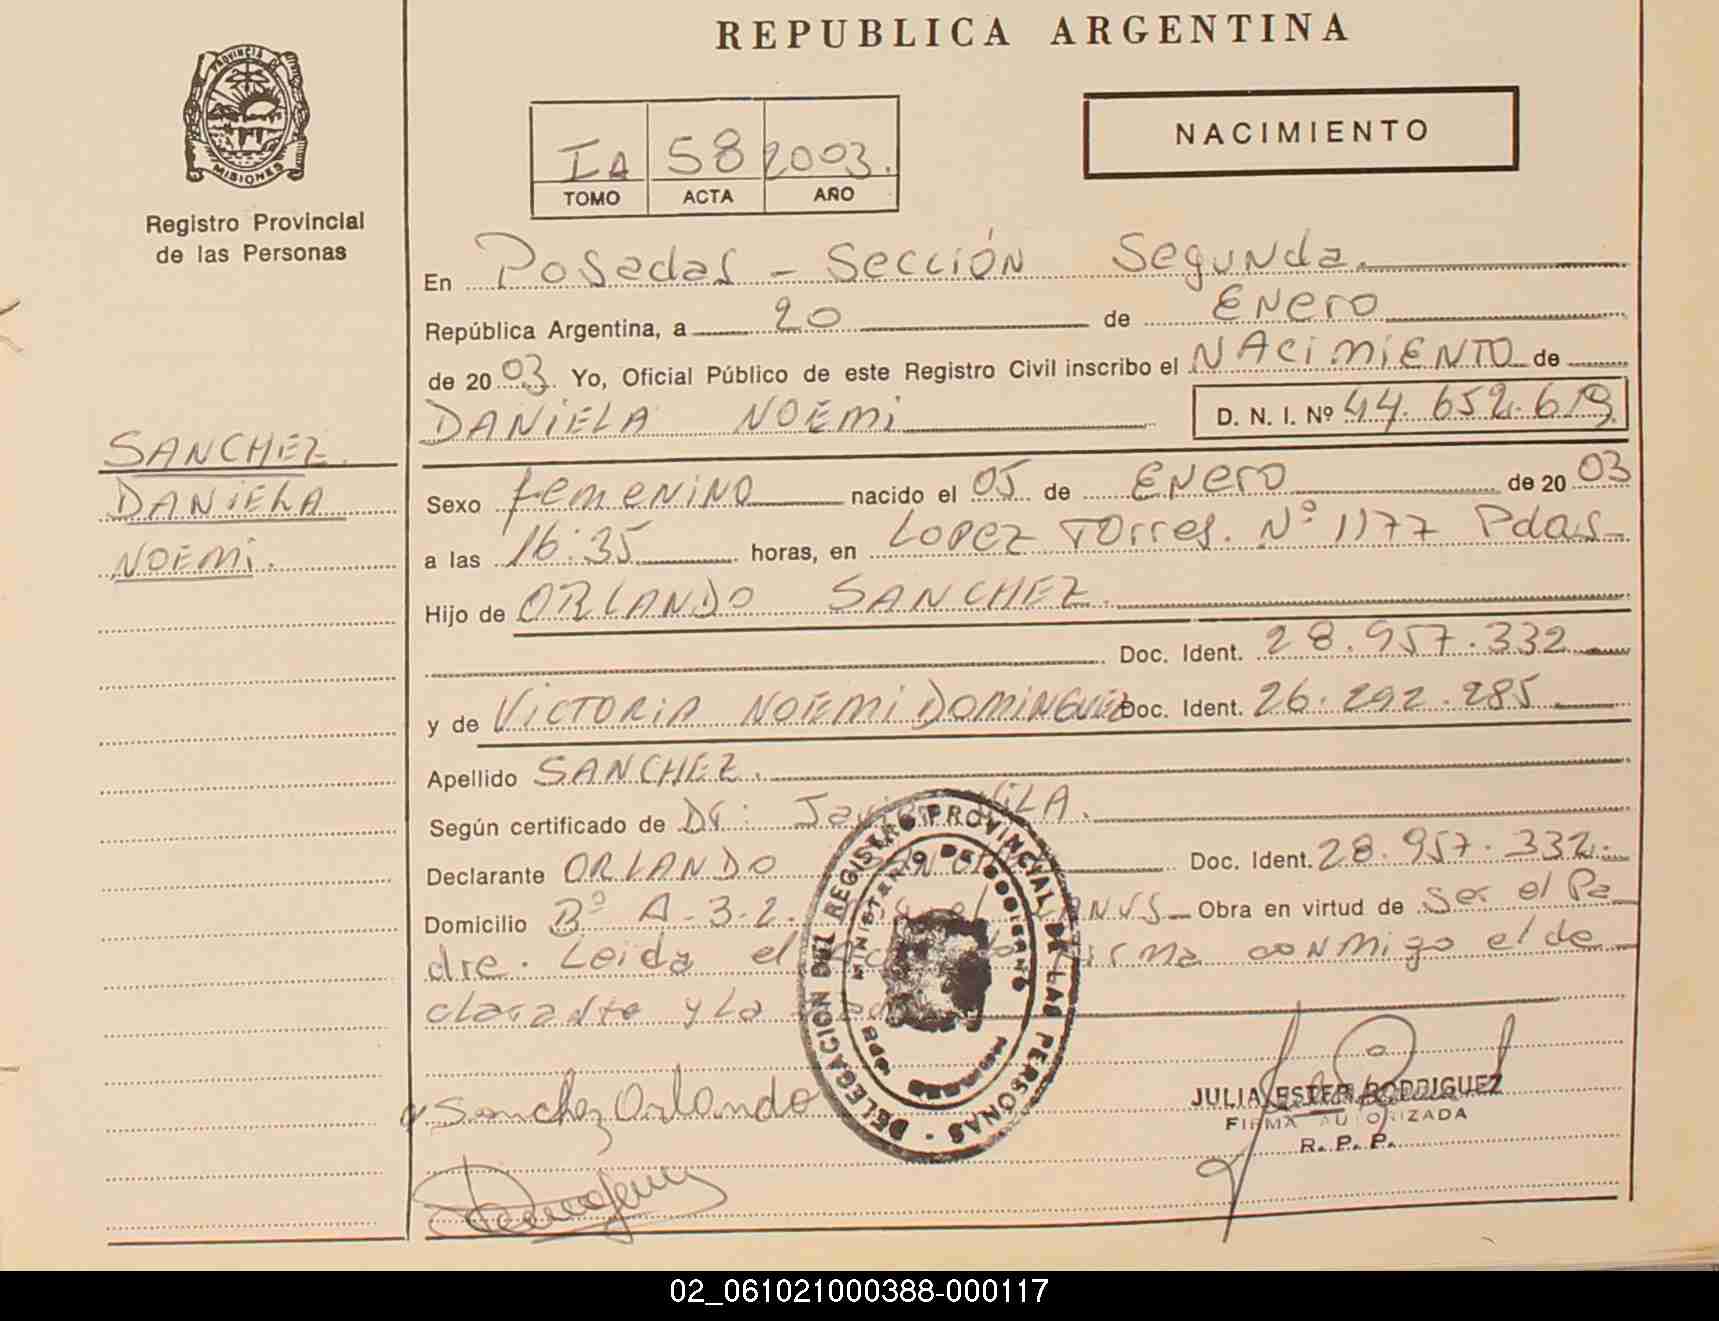 REPUBLICA ARGENTINA
PROVINCIA DE
MISIONES
Registro Provincial
de las Personas
IA 58 2003.
TOMO ACTA AÑO
NACIMIENTO
En Posadas - Sección Segunda.
República Argentina, a 20 de Enero
de 2003. Yo, Oficial Público de este Registro Civil inscribo el NACIMIENTO de
DANIELA NOEMI D. N. I. Nº 44.652.619
SANCHEZ.
DANIELA
NOEMI.
Sexo femenino nacido el 05 de Enero de 2003
a las 16:35 horas, en LOPEZ Torres. Nº 1177 Pdas
Hijo de ORLANDO SANCHEZ.
Doc. Ident. 28.957.332
y de VICTORIA NOEMI DOMINGUEZ Doc. Ident. 26.292.285
Apellido SANCHEZ.
Según certificado de Dr: Javier VILA.
Declarante ORLANDO SANCHEZ Doc. Ident. 28.957.332.
Domicilio Bº A-3-2. LANUS Obra en virtud de Ser el Pa
dre. Leida el firma conmigo el de
clarante y La
DELEGACION DEL REGISTRO PROVINCIAL DE LAS PERSONAS
MINISTERIO DE GOBIERNO
Sanchez Orlando
JULIA ESTER RODRIGUEZ
FIRMA AUTORIZADA
R. P. P.
02_061021000388-000117